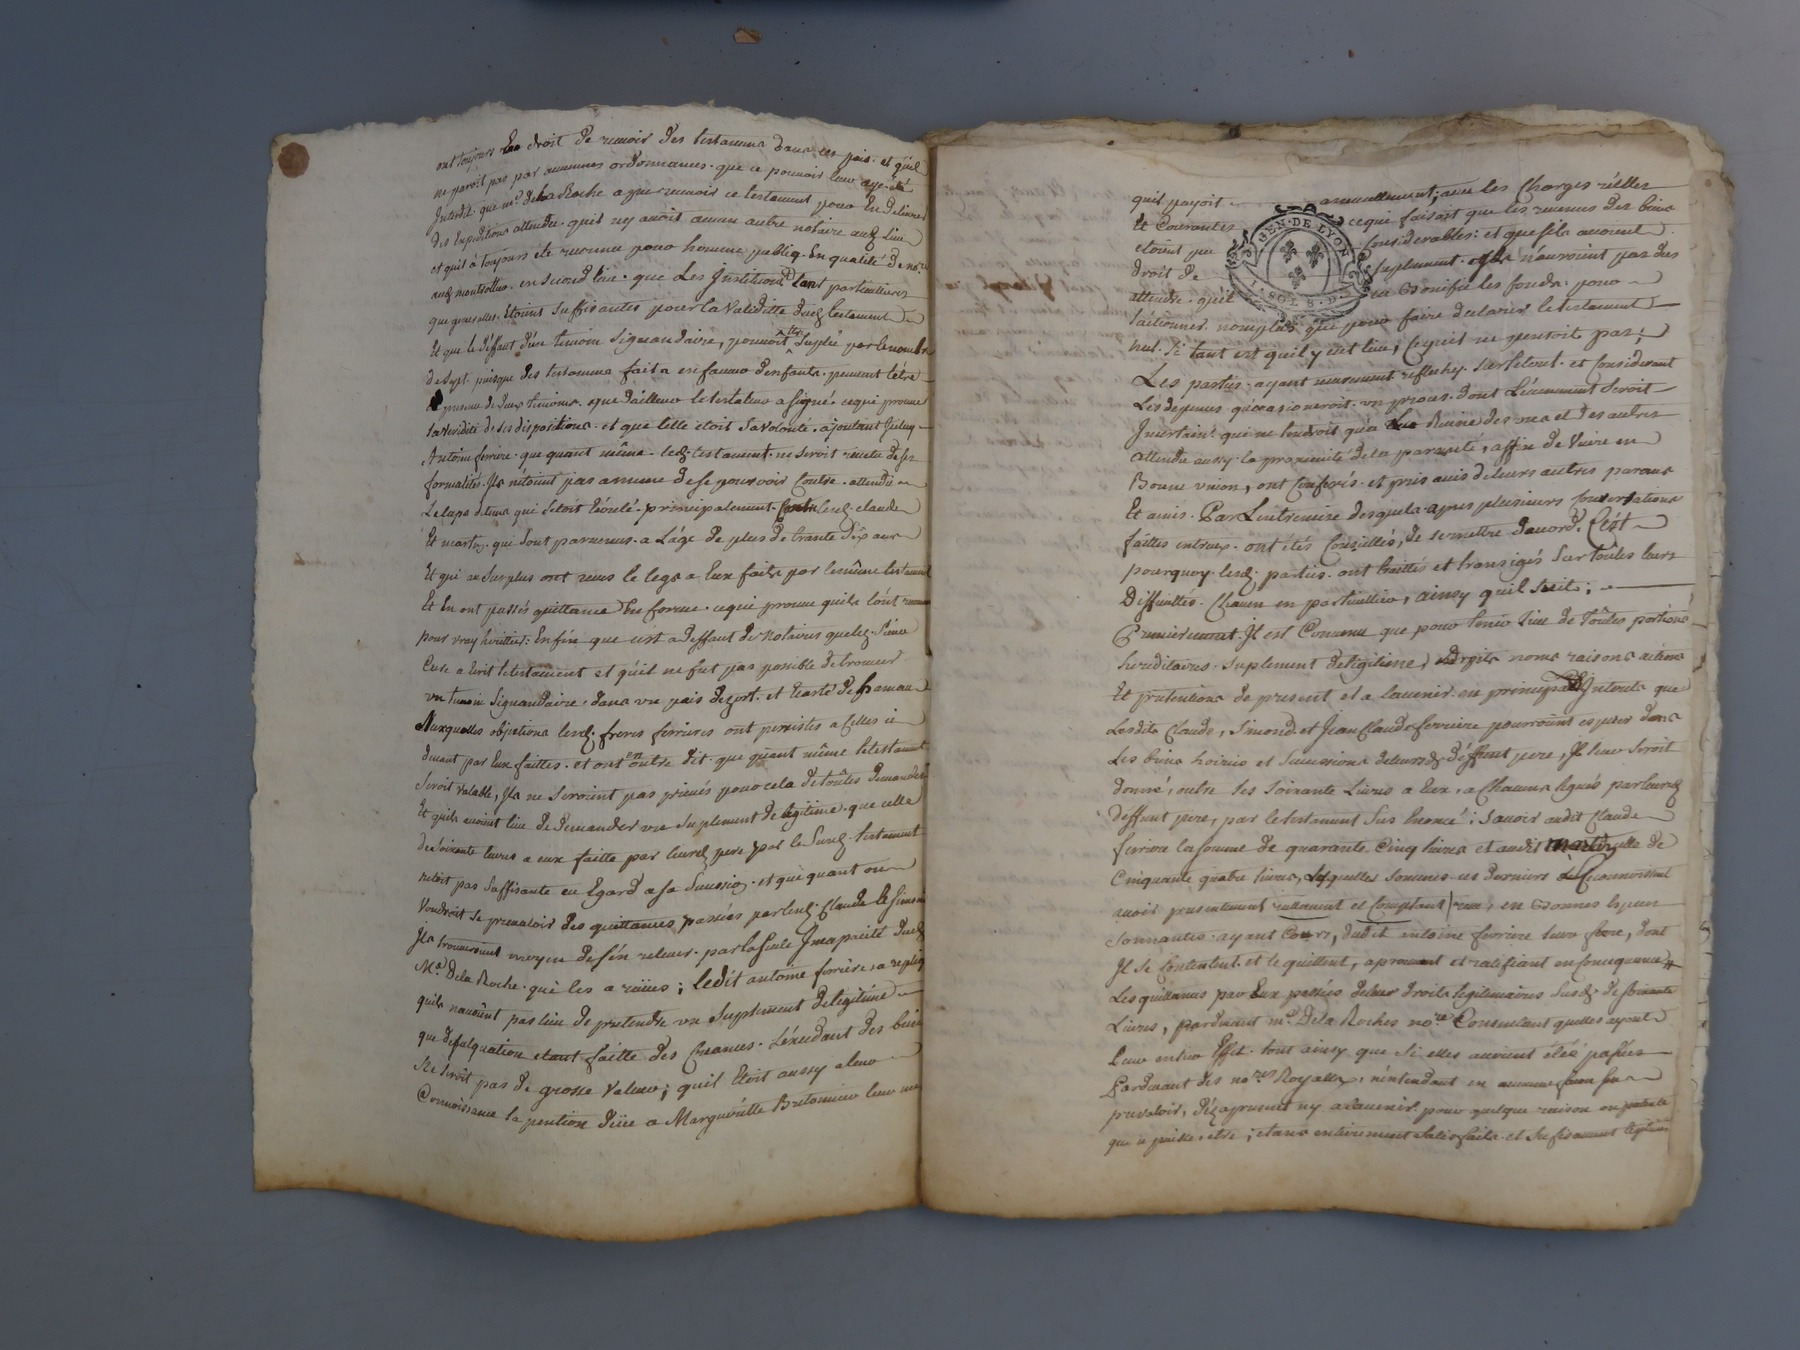 ont toujours eu droit de recevoir des testaments dans ces païs. et qu'il
ne paroit pas par aucunnes ordonnances. que ce pouvoir leur aye été
Interdit. que me. dela Roche a pu recevoir ce testament pour En delivrer
des Expeditions attendu. quil ny avoit aucun autre notaire audt. Lieu
et quil à toujours eté reconnu pour homme publiq. En qualité de nore.
audt montrottier. en second lieu. que Les Institutions tant particulieres
que generalles. Etoient suffisantes pour la validitté dudt. testament
Et que le déffaut d'un temoin signandaire, pouvoit être suplée par le nombre
de sept. puisque des testaments fait a en faveur d'enfants. peuvent l'être
en presence de deux temoins. que d'ailleurs le testateur a signé. ce qui prouve
la veridité de ses dispositions. et que telle etoit sa volonté. ajoutant Iceluy
Antoine ferriere. que quant même. ledt. testament. ne seroit revetu de ses
formalités. Ils n'étoient pas a meme de se pourvoir Contre. attendu
Le laps de tems qui s'etoit Ecoulé. principalement. Contre lesdt. claude
Et martin. qui sont parvenus. a L'âge de plus de trante dix ans
Et qui au surplus ont reçus le legs a Eux faits par le même testament
Et En ont passés quittance En forme. ce qui prouve quils l'ont reconnu
pour vray heritier: Enfin que c'est a deffaut de Notaires que led. sieur
Curé a Ecrit le testament et qu'il ne fut pas possible de trouver
un temoin signandaire. dans un païs dezert. et Ecarté de hameau
Auxquelles objections lesdt. freres ferrieres ont persistés a Celles ci
devant par Eux faittes. et ont en outre dit. que quant même le testament
seroit valable, Ils ne seroient pas privés pour cela de toûtes demandes
Et quils avoient lieu de demander un suplement de legitime. que celle
de soixante livres a eux faitte par leurdt. pere par le susdt. testament
n'étoit pas suffisante eu Egard a sa succession. et que quant on
voudroit se prevaloir des quittances passées par lesdt. Claude et Simond
Ils trouveroient moyen de s'en relever. par la seule Incapacité dudt
Me. Dela Roche. qui les a reçües; ledit antoine ferriere, a repliqué
quils n'avoient pas lieu de pretendre un suplement de legitime
que defalquation etant faitte des Creances. L'excedant des biens
Ne seroit pas de grosse valeur; quil Etoit aussy a leur
Connoissance la pention düe a Margueritte Bretonnier leur mere
quil payoit annuellement, avec les Charges réelles
Et Courantes ce qui faisoit que les revenus des biens
etoient peu Considerables: et que s'ils avoient
droit de suplement. Ils n'auroient pas des
attendu. qu'il en bonifie les fonds. pour
l'actionner. non plus que pour faire declarer le testament
nul. si tant est qu'il y eut lieu, ce qu'il ne pensoit pas;
Les parties. ayant meurement reflechy. sur le tout. et Considerant
Les depenses qu'occasioneroit. un procés. dont L'évenement seroit
Incertain. qui ne tendroit qu'a La Ruine des uns et des autres
attendu aussy. la proximité de la parenté, affin de vivre en
Bonne union, ont Conferés. et pris avis de leurs autres parans
Et amis. Par L'entremise desquels. apres plusieurs Conversations
faittes entreux. ont étés Conseilliés, de se mettre d'acord. C'est
pourquoy. lesdt. parties. ont traittés et transigés sur toûtes leurs
Difficultés. Chacun en particullier, ainsy quil suit;
Premierement. Il est Convenu que pour tenir lieu de toûtes portions
hereditaires. suplement de legitime, droits noms raisons actions
Et pretentions de present et a l'avenir. en principal Interets que
Lesdits Claude, Simond. et Jean Claude ferriere pourroient esperer dans
Les biens hoirie et Successions de leursdt. déffunt pere, Il leur seroit
donné, outre les soixante Livres a Eux, a Chacuns legués par leurdt
déffunt pere, par le testament sus Enoncé; savoir audit Claude
ferriere la somme de quarante Cinq livres et audit Martin celle de
Cinquante quatre livres, Lesquelles sommes ces derniers Reconnoissent
avoir presentement reellement et Comptant reçu, en Bonnes Especes
sonnantes. ayant Cours, dudit antoine ferriere leur frere, dont
Il se Contentent. et le quittent, aprouvant et ratifiant en Consequence
Les quittances par Eux passées de leur droits legitimaires susdt. de soixante
Livres, pardevant me. Dela Roches nore. Consentant quelles ayent
Leur entier Effet. tout ainsy que si elles avoient étés passées
Pardevant des nores. Royaux, n'entendant en aucune façon s'en
prevaloir, dez apresent ny a l'avenir. pour quelque raison ou pretexte
que ce puisse. etre; etans entierement satisfaits. et suffisament legitimés
GEN. DE LYON